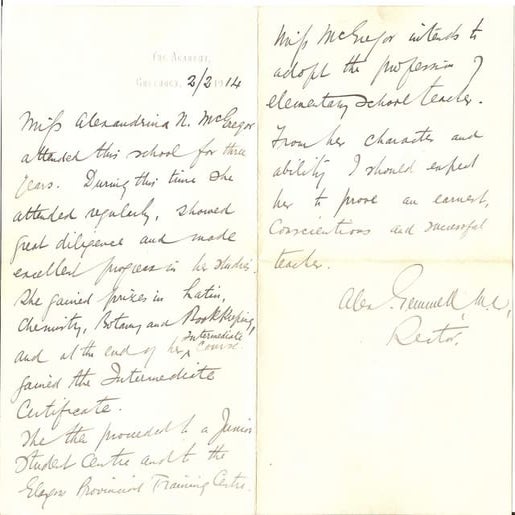 The Academy,
Greenock, 2/2 1914
Miss Alexandrina N. McGregor
attended this school for three
years. During this time she
attended regularly, showed
great diligence and made
excellent progress in her studies.
She gained prizes in Latin,
Chemistry, Botany and Bookkeeping,
and at the end of her Intermediate Course
gained the Intermediate
Certificate.
She then proceeded to a Junior
Student Centre and to the
Glasgow Provincial Training Centre.
Miss McGregor intends to
adopt the profession of
elementary school teacher.
From her character and
ability I should expect
her to prove an earnest,
conscientious and successful
teacher.
Alex. Gemmell, M.A.,
Rector.